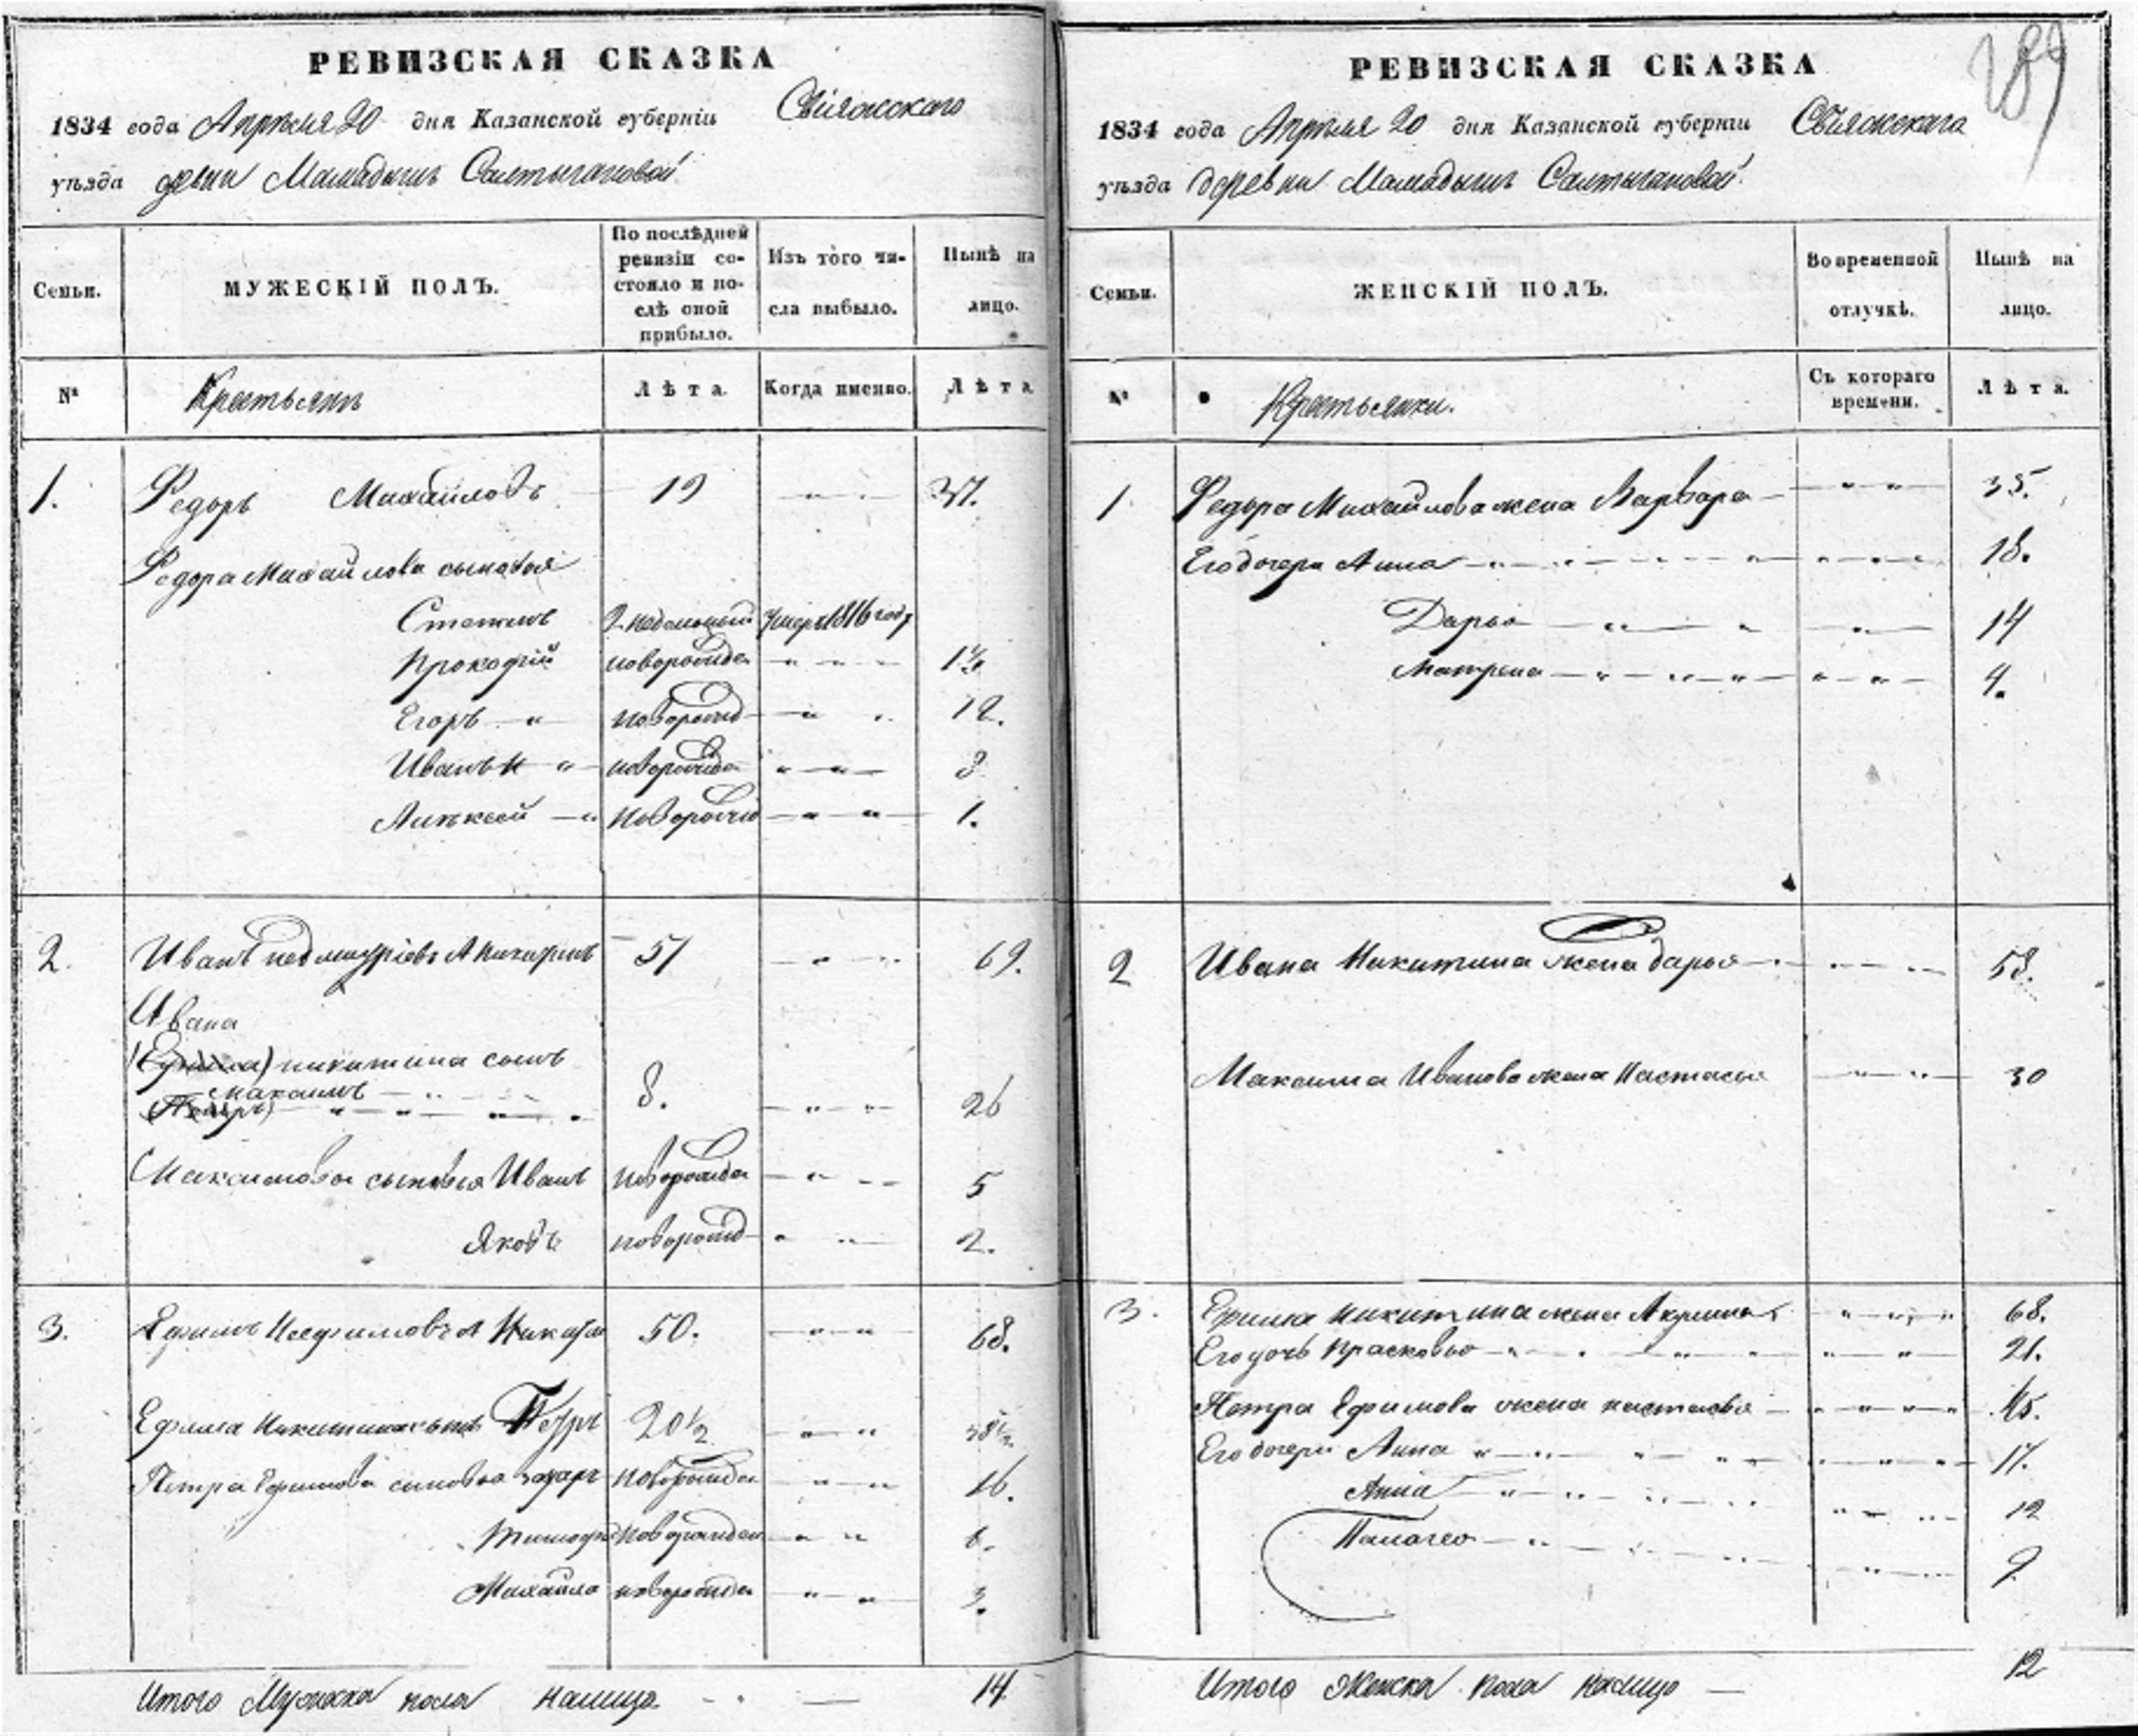 РЕВИЗСКАЯ СКАЗКА
1834 года Апреля 20 дня Казанской губерніи Свіяжскаго
уѣзда дѣвни Мамадышъ Салтыгановой
Семьи. МУЖЕСКІЙ ПОЛЪ. По послѣдней ревизіи состояло и послѣ оной прибыло. Изъ того числа выбыло. Нынѣ на лицо.
№ Крестьянъ Лѣта Когда именно. Лѣта
1. Федоръ Михайловъ 19 37.
Федора Михайлова сыновья
Степанъ 2 недельный Умеръ 1816 году
Прокофій новорожде
Егоръ новорожд 12.
Иванъ новорожде 8
Алексей новорожд 1.
2. Иванъ А Никитинъ 51 69.
Ивана
(Ефима) никитина сынъ
Максимъ 8. 26
(Петръ)
Максимова сыновья Иванъ новорожден 5
Яковъ новорожд 2.
3. Ефимъ А Никити 50. 68.
Ефима Никитина сынъ Петръ 20½ 38½.
Петра Ефимова сыновья Захаръ новорожден 16.
Тимофе новорожден 6.
Михайло новорожден 3.
Итого Мужска пола налицо 14
РЕВИЗСКАЯ СКАЗКА
189
1834 года Апреля 20 дня Казанской губерніи Свіяжскага
уѣзда деревни Мамадышъ Салтыгановой
Семьи. ЖЕНСКІЙ ПОЛЪ. Во временной отлучкѣ. Нынѣ на лицо.
№ Крестьянки. Съ котораго времени. Лѣта.
1 Федора Михайлова жена Варвара 35.
Его дочери Анна 18.
Дарья 14
Матрена 4.
2 Ивана Никитина жена дарья 58.
Максима Иванова жена Настасья 30
3. Ефима никитина жена Акулина 68.
Его дочь прасковья 21.
Петра Ефимова жена настасья
Его дочери Анна 17.
Анна 12
9
Итого Женска пола налицо 12